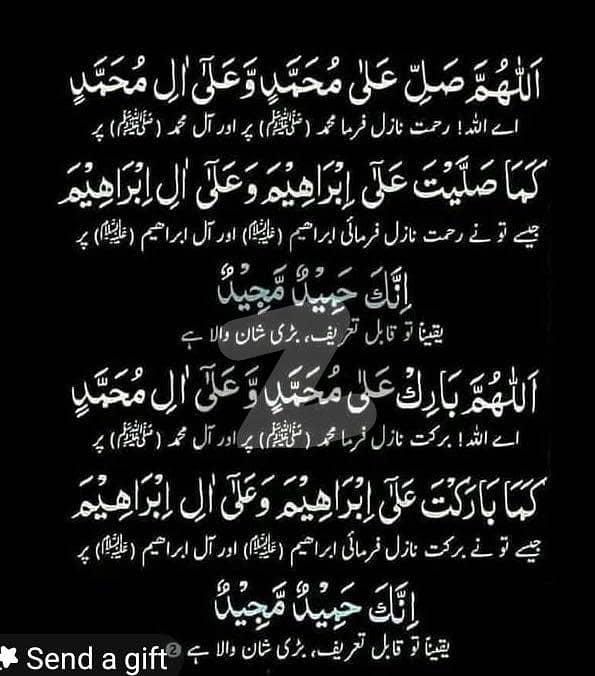 اَللّٰهُمَّ صَلِّ عَلٰى مُحَمَّدٍ وَّعَلٰٓى اٰلِ مُحَمَّدٍ
اے اللہ! رحمت نازل فرما محمد (ﷺ) پر اور آل محمد (ﷺ) پر
كَمَا صَلَّيْتَ عَلٰٓى اِبْرَاهِيْمَ وَعَلٰٓى اٰلِ اِبْرَاهِيْمَ
جیسے تو نے رحمت نازل فرمائی ابراھیم (علیہ السلام) اور آل ابراھیم (علیہ السلام) پر
اِنَّكَ حَمِيْدٌ مَّجِيْدٌ
یقیناً تو قابل تعریف، بڑی شان والا ہے
اَللّٰهُمَّ بَارِكْ عَلٰى مُحَمَّدٍ وَّ عَلٰٓى اٰلِ مُحَمَّدٍ
اے اللہ! برکت نازل فرما محمد (ﷺ) پر اور آل محمد (ﷺ) پر
كَمَا بَارَكْتَ عَلٰٓى اِبْرَاهِيْمَ وَعَلٰٓى اٰلِ اِبْرَاهِيْمَ
جیسے تو نے برکت نازل فرمائی ابراھیم (علیہ السلام) اور آل ابراھیم (علیہ السلام) پر
اِنَّكَ حَمِيْدٌ مَّجِيْدٌ
یقیناً تو قابل تعریف، بڑی شان والا ہے 2
Send a gift